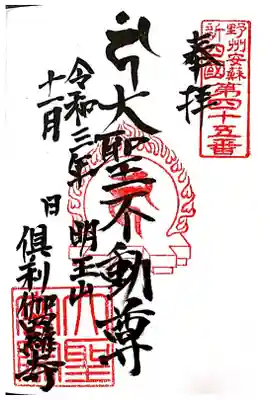 野州安蘇
新四國
第四十五番
奉拝
大聖不動尊
令和三年
十一月 日
明王山
倶利伽羅寺